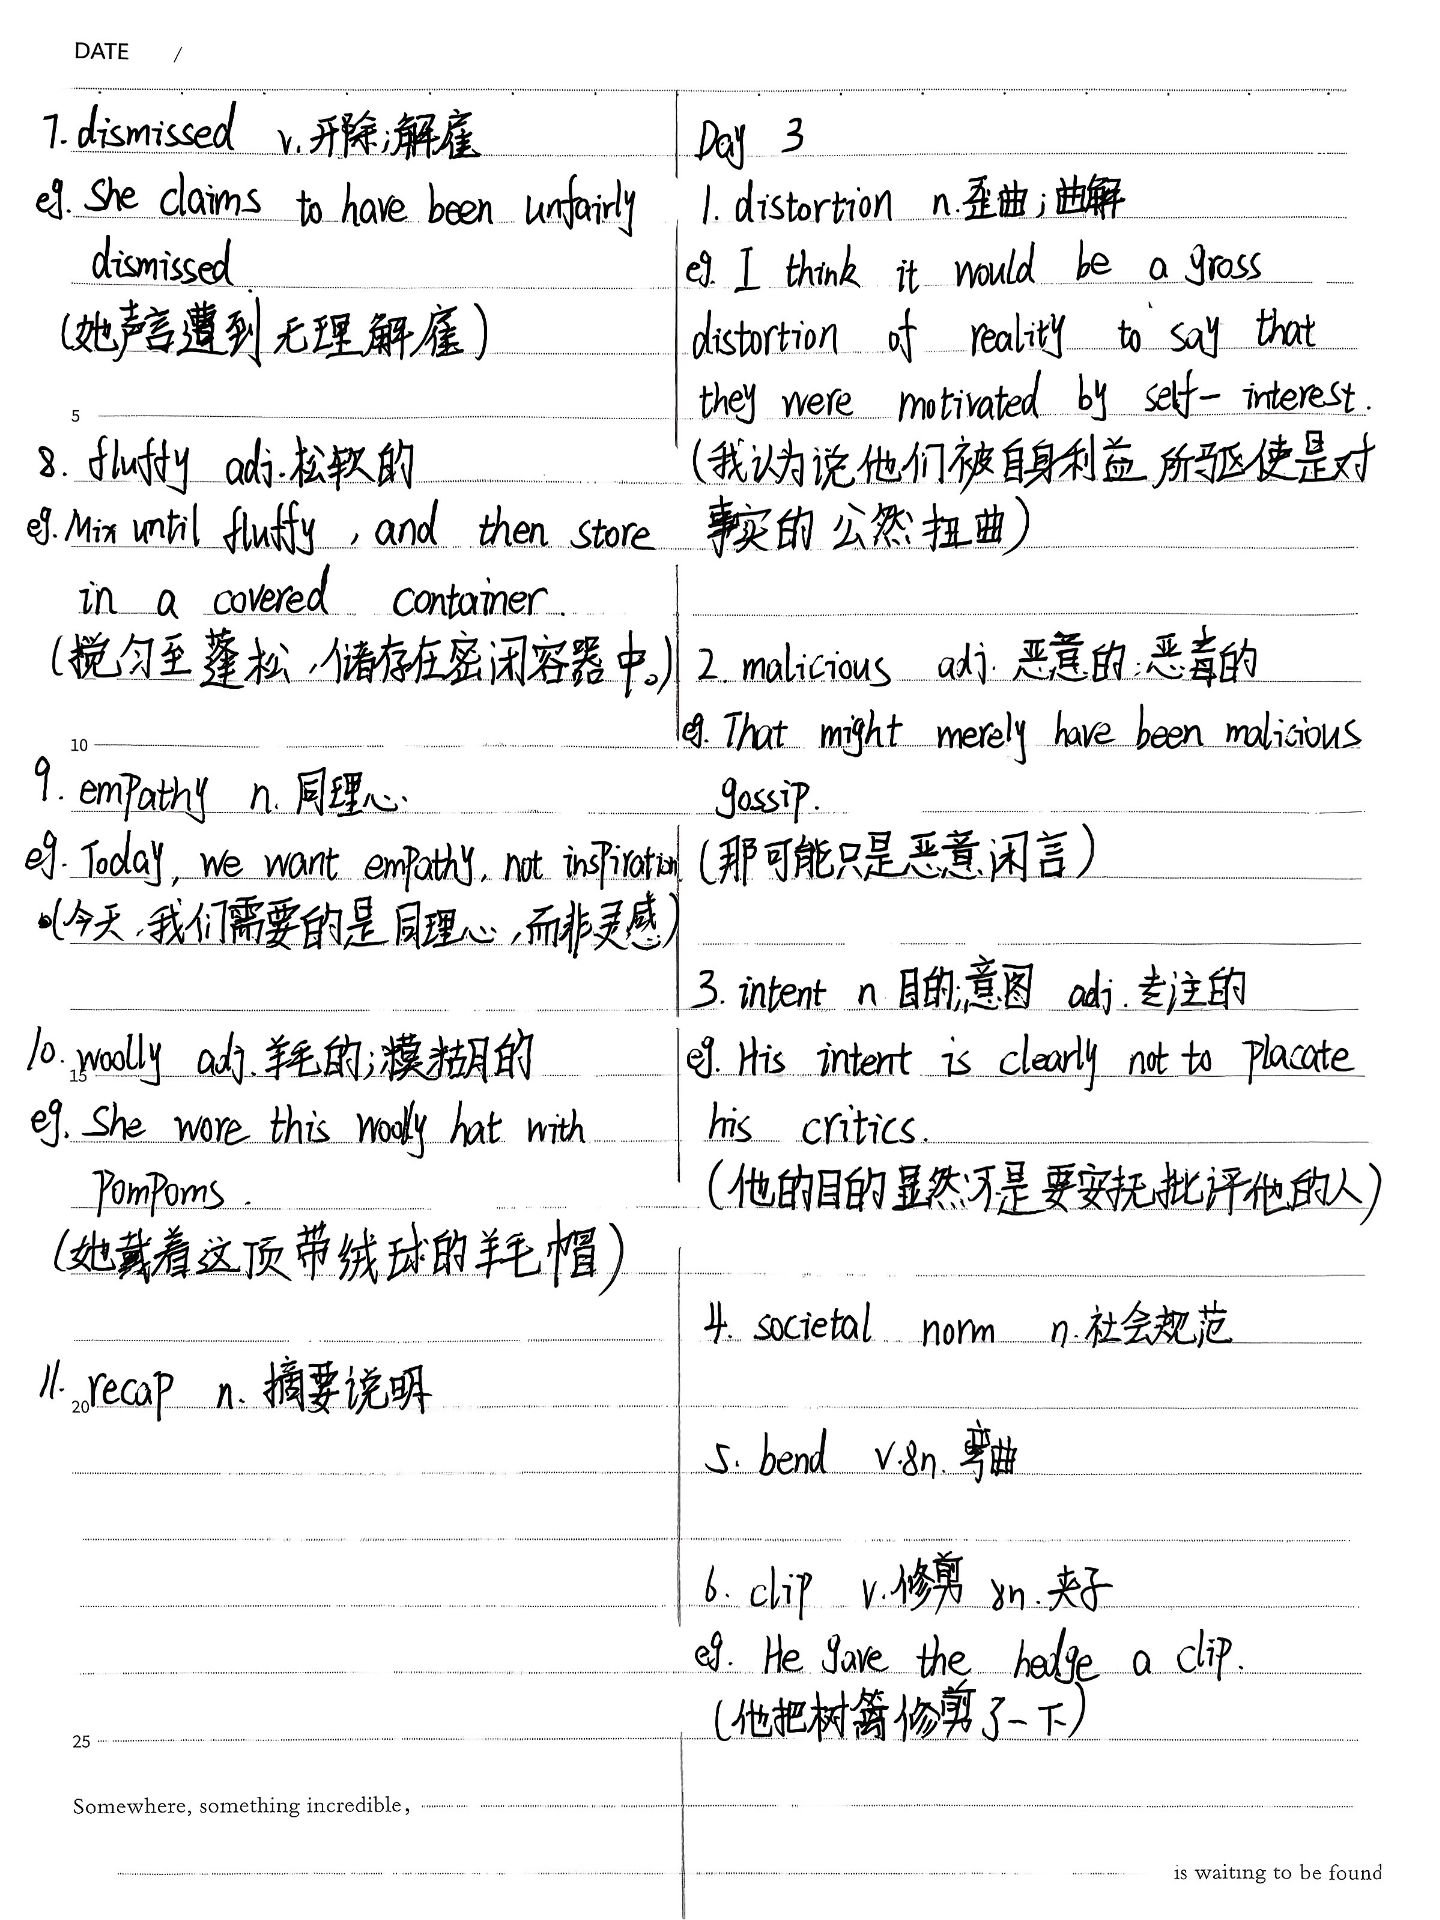 DATE /
7. dismissed v. 开除;解雇
eg. She claims to have been unfairly
dismissed.
(她声言遭到无理解雇)
5
8. fluffy adj. 松软的
eg. Mix until fluffy, and then store
in a covered container.
(搅匀至蓬松,储存在密闭容器中。)
10
9. empathy n. 同理心.
eg. Today, we want empathy, not inspiration.
(今天,我们需要的是同理心,而非灵感)
10. woolly adj. 羊毛的;模糊的
15
eg. She wore this woolly hat with
pompoms.
(她戴着这顶带绒球的羊毛帽)
11. recap n. 摘要说明
20
25
Day 3
1. distortion n. 歪曲;曲解
eg. I think it would be a gross
distortion of reality to say that
they were motivated by self-interest.
(我认为说他们被自身利益所驱使是对
事实的公然扭曲)
2. malicious adj. 恶意的;恶毒的
eg. That might merely have been malicious
gossip.
(那可能只是恶意闲言)
3. intent n. 目的;意图 adj. 专注的
eg. His intent is clearly not to placate
his critics.
(他的目的显然不是要安抚批评他的人)
4. societal norm n. 社会规范
5. bend v.&n. 弯曲
6. clip v. 修剪 &n. 夹子
eg. He gave the hedge a clip.
(他把树篱修剪了一下)
Somewhere, something incredible,
is waiting to be found